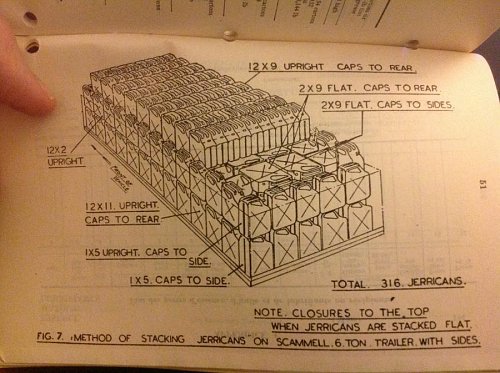 12X9 UPRIGHT CAPS TO REAR.
2X9 FLAT. CAPS TO REAR.
2X9 FLAT. CAPS TO SIDES.
12X2
UPRIGHT
12 X 11. UPRIGHT.
CAPS TO REAR
1X5 UPRIGHT. CAPS TO
SIDE.
1X5. CAPS TO SIDE.
TOTAL. 316. JERRICANS.
NOTE. CLOSURES TO THE TOP
WHEN JERRICANS ARE STACKED FLAT.
FIG. 7. METHOD OF STACKING JERRICANS ON SCAMMELL. 6.TON. TRAILER. WITH SIDES.
51